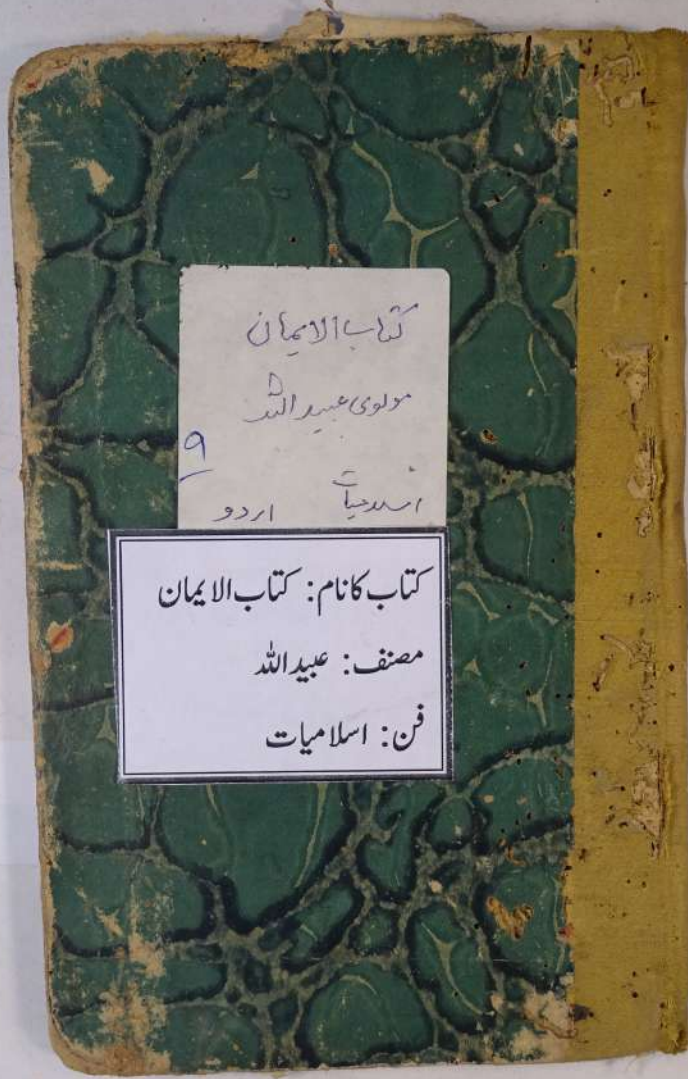 کتاب الایمان
مولوی عبید اللہ
۹
اسلامیات اردو
کتاب کا نام: کتاب الایمان
مصنف: عبید اللہ
فن: اسلامیات